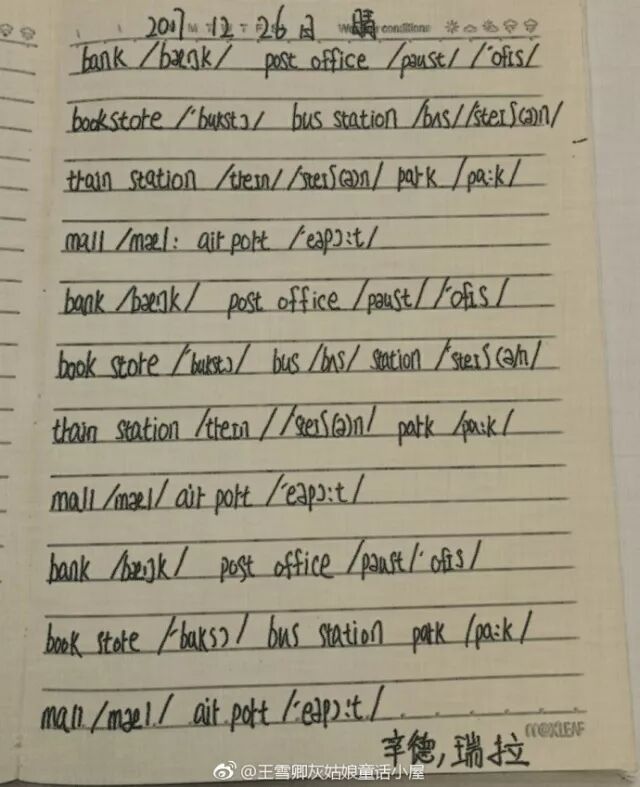 2017 12 26日 晴
bank /bæŋk/ post office /pəust/ /'ɒfɪs/
bookstore /'bukstɔ/ bus station /bʌs//steɪʃ(ə)n/
train station /treɪn/ /steɪʃ(ə)n/ park /pa:k/
mall /mæl: airport /'eəpɔ:t/
bank /bæŋk/ post office /pəust/ /'ɒfɪs/
book store /'bukstɔ/ bus /bʌs/ station /'steɪʃ(ə/n/
train station /treɪn / /steɪʃ(ə)n/ park /pa:k/
mall /mæl/ airport /'eəpɔ:t/
bank /bæŋk/ post office /pəust/'ɒfɪs/
book store /'buksɔ/ bus station park /pa:k/
mall /mæl/ airport /'eəpɔ:t/
MAXLEAF
辛德,瑞拉
@王雪卿灰姑娘童话小屋